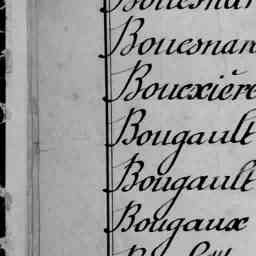 Bouesnar
Bouexière
Bougault
Bougault
Bougaux